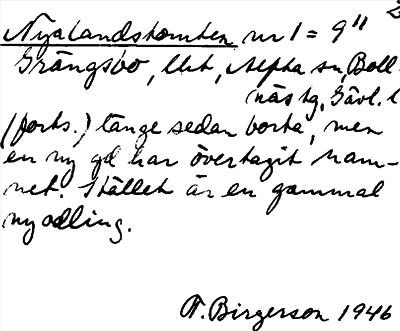 2
Nyalandstomten nr 1 = 9"
Grängsbo, Ubt, Alfta sn, Boll-
näs tg, Gävl. l
(forts.) länge sedan borta, men
en ny gd har övertagit nam-
net. Stället är en gammal
nyodling.
F. Birgerson 1946